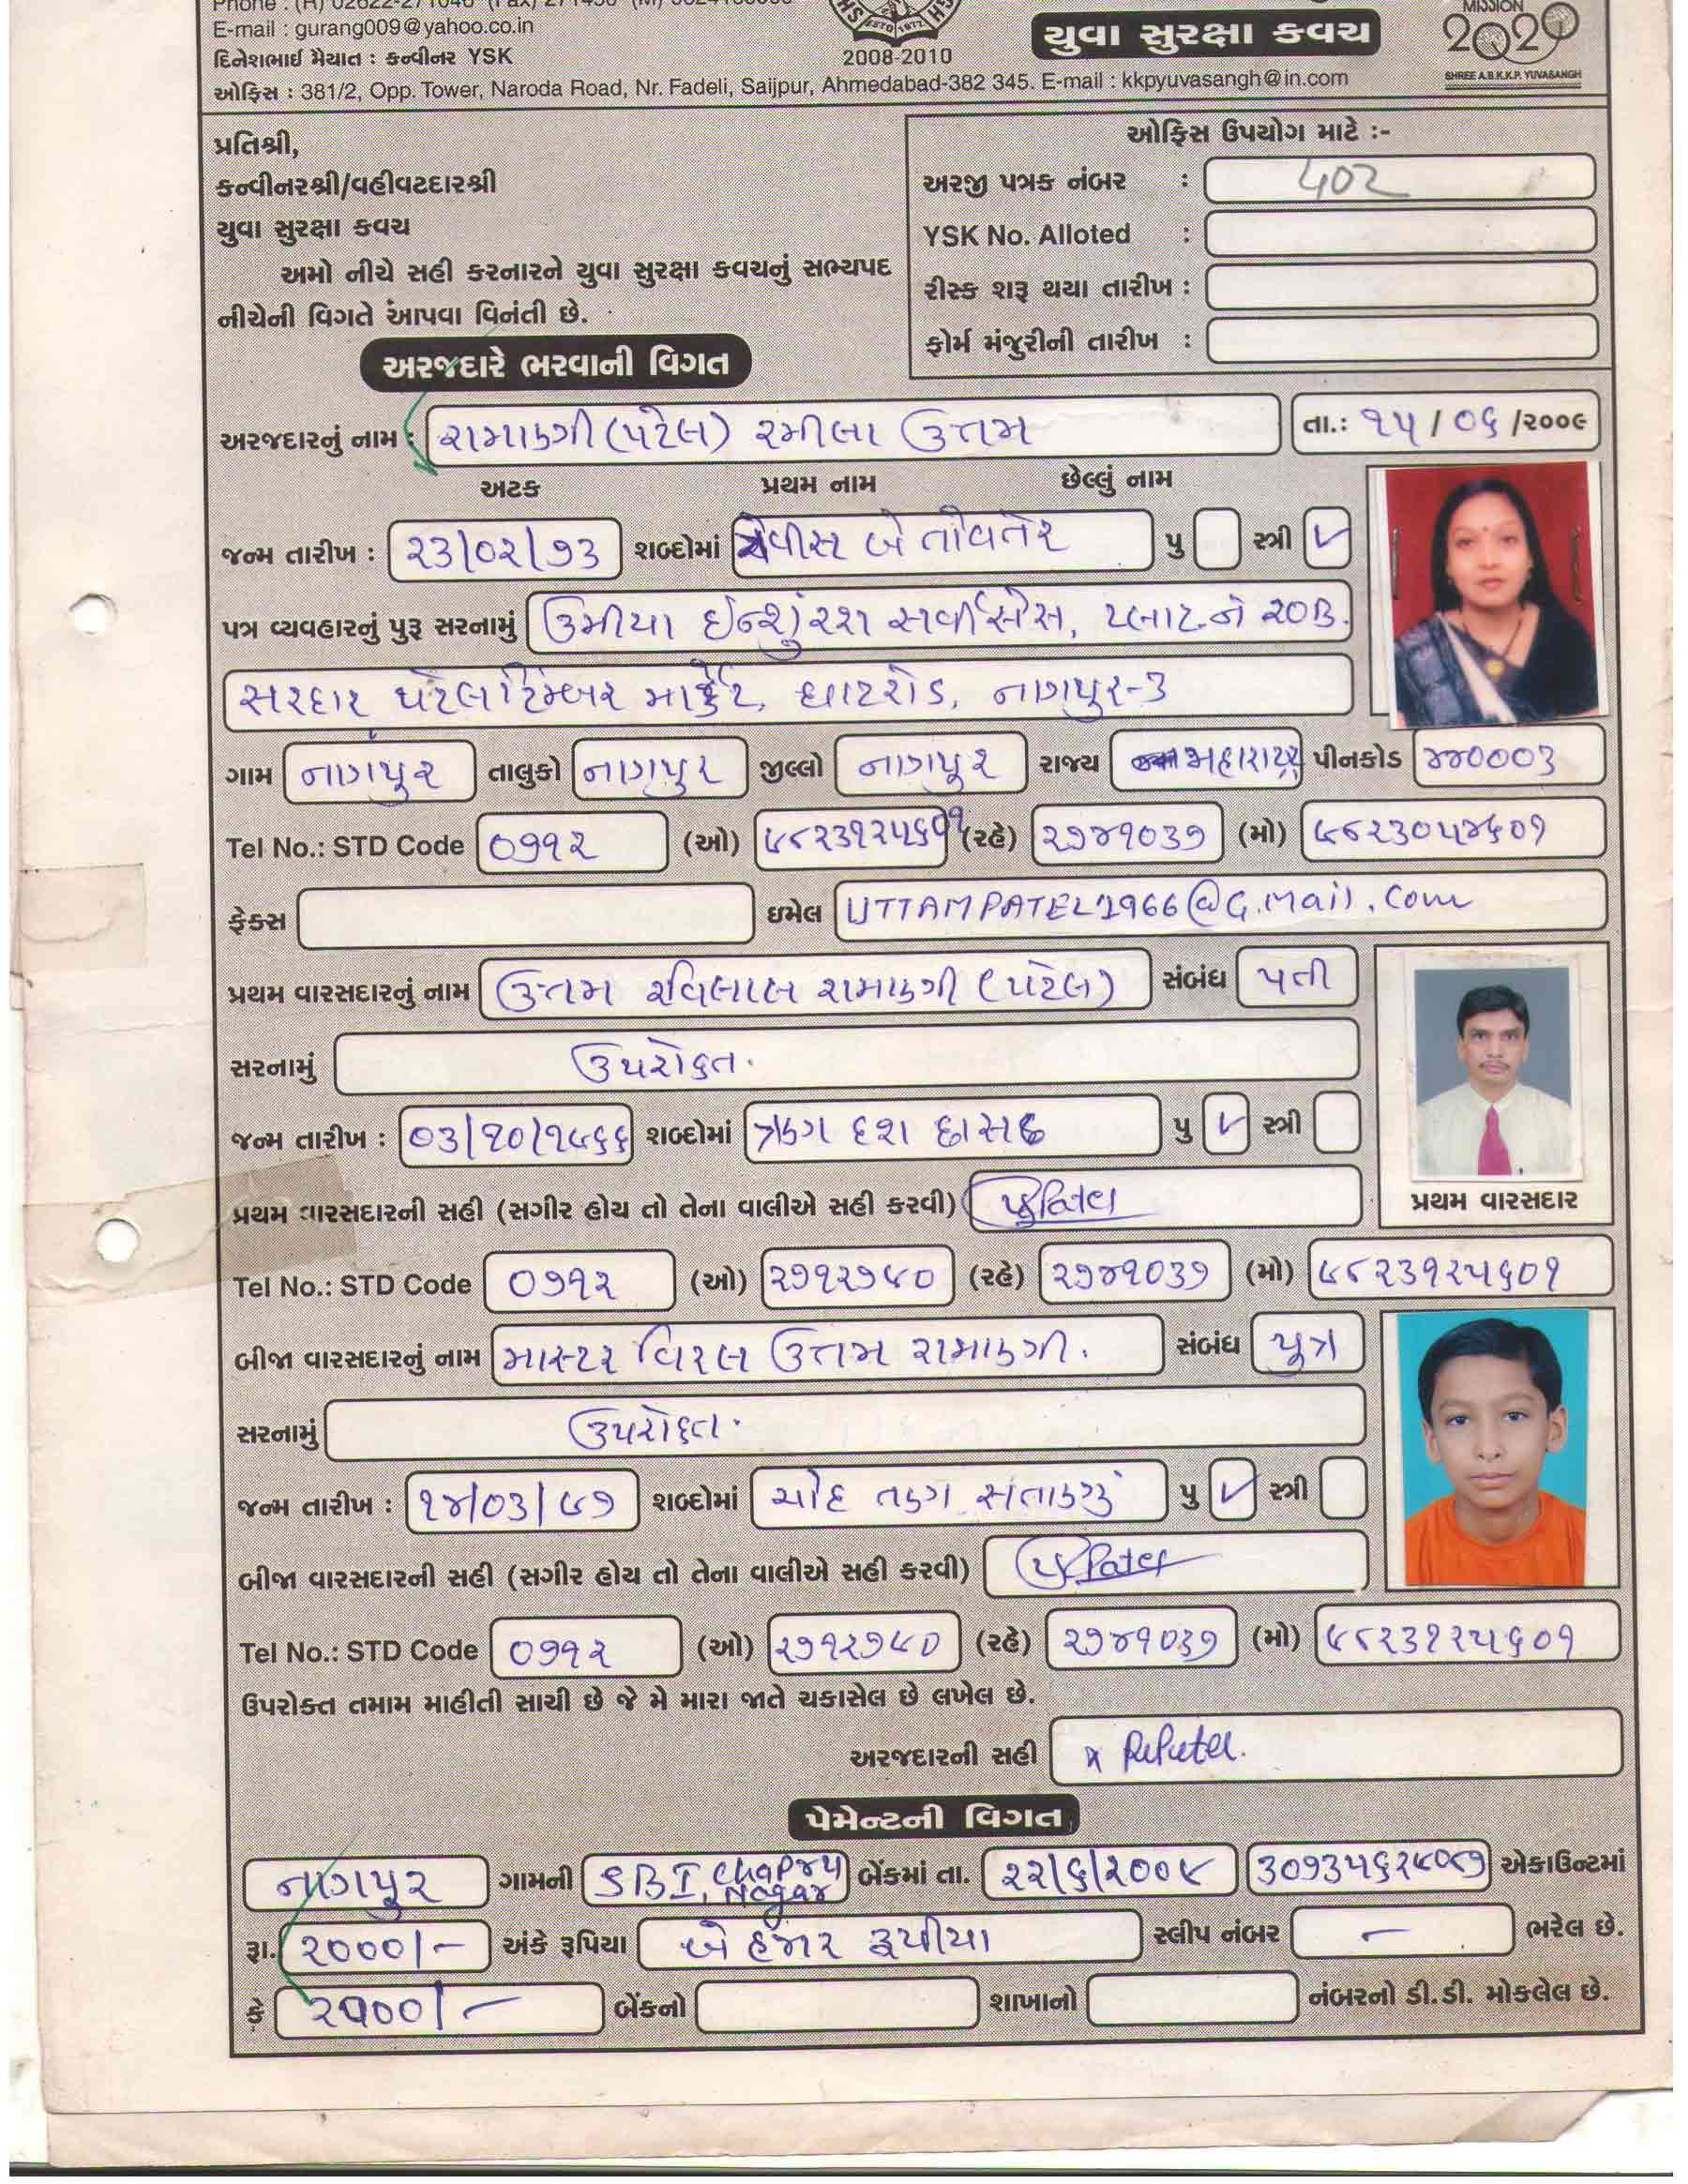 E-mail : gurang009@yahoo.co.in
દિનેશભાઈ મૈયાત : કન્વીનર YSK
2008-2010
યુવા સુરક્ષા કવચ
MISSION
2020
SHREE A.B.K.K.P. YUVASANGH
ઓફિસ : 381/2, Opp. Tower, Naroda Road, Nr. Fadeli, Saijpur, Ahmedabad-382 345. E-mail : kkpyuvasangh@in.com
પ્રતિશ્રી,
કન્વીનરશ્રી/વહીવટદારશ્રી
યુવા સુરક્ષા કવચ
અમો નીચે સહી કરનારને યુવા સુરક્ષા કવચનું સભ્યપદ
નીચેની વિગતે આપવા વિનંતી છે.
ઓફિસ ઉપયોગ માટે :-
અરજી પત્રક નંબર : 402
YSK No. Alloted :
રીસ્ક શરૂ થયા તારીખ :
ફોર્મ મંજુરીની તારીખ :
અરજદારે ભરવાની વિગત
અરજદારનું નામ : રામાણી (પટેલ) રમીલા ઉત્તમ તા.: ૧૫ / ૦૬ /૨૦૦૯
અટક પ્રથમ નામ છેલ્લું નામ
જન્મ તારીખ : ૨૩/૦૨/૭૩ શબ્દોમાં ત્રેવીસ બે તોંતેર પુ સ્ત્રી ✓
પત્ર વ્યવહારનું પુરૂ સરનામું ઉમીયા ઈન્શ્યુંરન્શ સર્વીસેસ, પ્લાટ નં ૨૦B.
સરદાર પટેલ ટિમ્બર માર્કેટ, ઘાટરોડ, નાગપુર-૩
ગામ નાગપુર તાલુકો નાગપુર જીલ્લો નાગપુર રાજ્ય મહારાષ્ટ્ર પીનકોડ ૪૪૦૦૦૩
Tel No.: STD Code ૦૭૧૨ (ઓ) ૯૮૨૩૧૨૫૬૦૧ (રહે) ૨૭૪૧૦૩૭ (મો) ૯૮૨૩૦૫૪૬૦૧
ફેક્સ ઇમેલ UTTAMPATEL1966@G.mail.com
પ્રથમ વારસદારનું નામ ઉત્તમ રવિલાલ રામાણી (પટેલ) સંબંધ પતી
સરનામું ઉપરોક્ત.
જન્મ તારીખ : ૦૩/૧૦/૧૯૬૬ શબ્દોમાં ત્રણ દશ છાસઠ પુ ✓ સ્ત્રી
પ્રથમ વારસદારની સહી (સગીર હોય તો તેના વાલીએ સહી કરવી)
પ્રથમ વારસદાર
Tel No.: STD Code ૦૭૧૨ (ઓ) ૨૭૧૨૭૯૦ (રહે) ૨૭૪૧૦૩૭ (મો) ૯૮૨૩૧૨૫૬૦૧
બીજા વારસદારનું નામ માસ્ટર વિરલ ઉત્તમ રામાણી. સંબંધ પુત્ર
સરનામું ઉપરોક્ત.
જન્મ તારીખ : ૧૪/૦૩/૯૭ શબ્દોમાં ચૌદ ત્રણ સતાણું પુ ✓ સ્ત્રી
બીજા વારસદારની સહી (સગીર હોય તો તેના વાલીએ સહી કરવી) Patel
Tel No.: STD Code ૦૭૧૨ (ઓ) ૨૭૧૨૭૯૦ (રહે) ૨૭૪૧૦૩૭ (મો) ૯૮૨૩૧૨૫૬૦૧
ઉપરોક્ત તમામ માહીતી સાચી છે જે મે મારા જાતે ચકાસેલ છે લખેલ છે.
અરજદારની સહી x RPatel.
પેમેન્ટની વિગત
નાગપુર ગામની SBI, Chapru Nagar બેંકમાં તા. ૨૨/૬/૨૦૦૯ એકાઉન્ટમાં
રૂા. ૨૦૦૦/- અંકે રૂપિયા બે હજાર રૂપીયા સ્લીપ નંબર - ભરેલ છે.
કે ૨૧૦૦/- બેંકનો શાખાનો નંબરનો ડી.ડી. મોકલેલ છે.